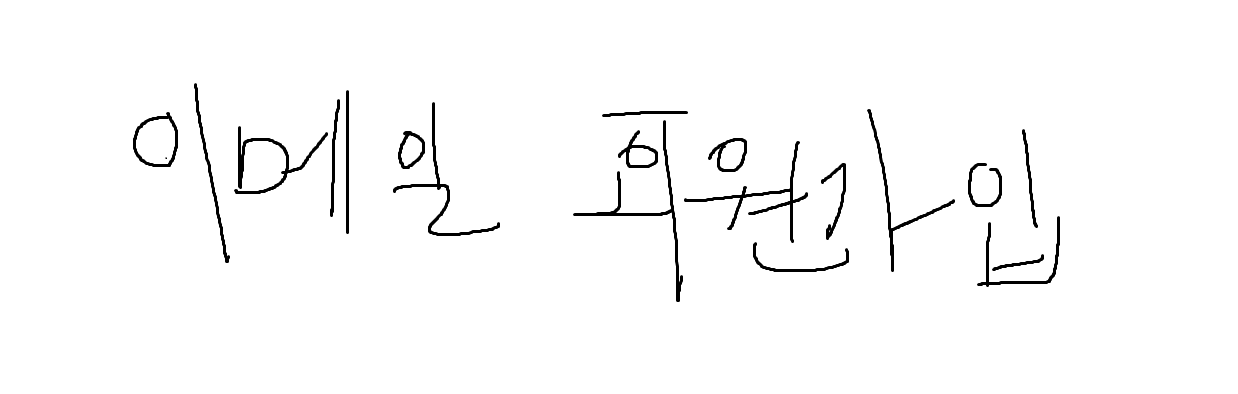 이메일 회원가입